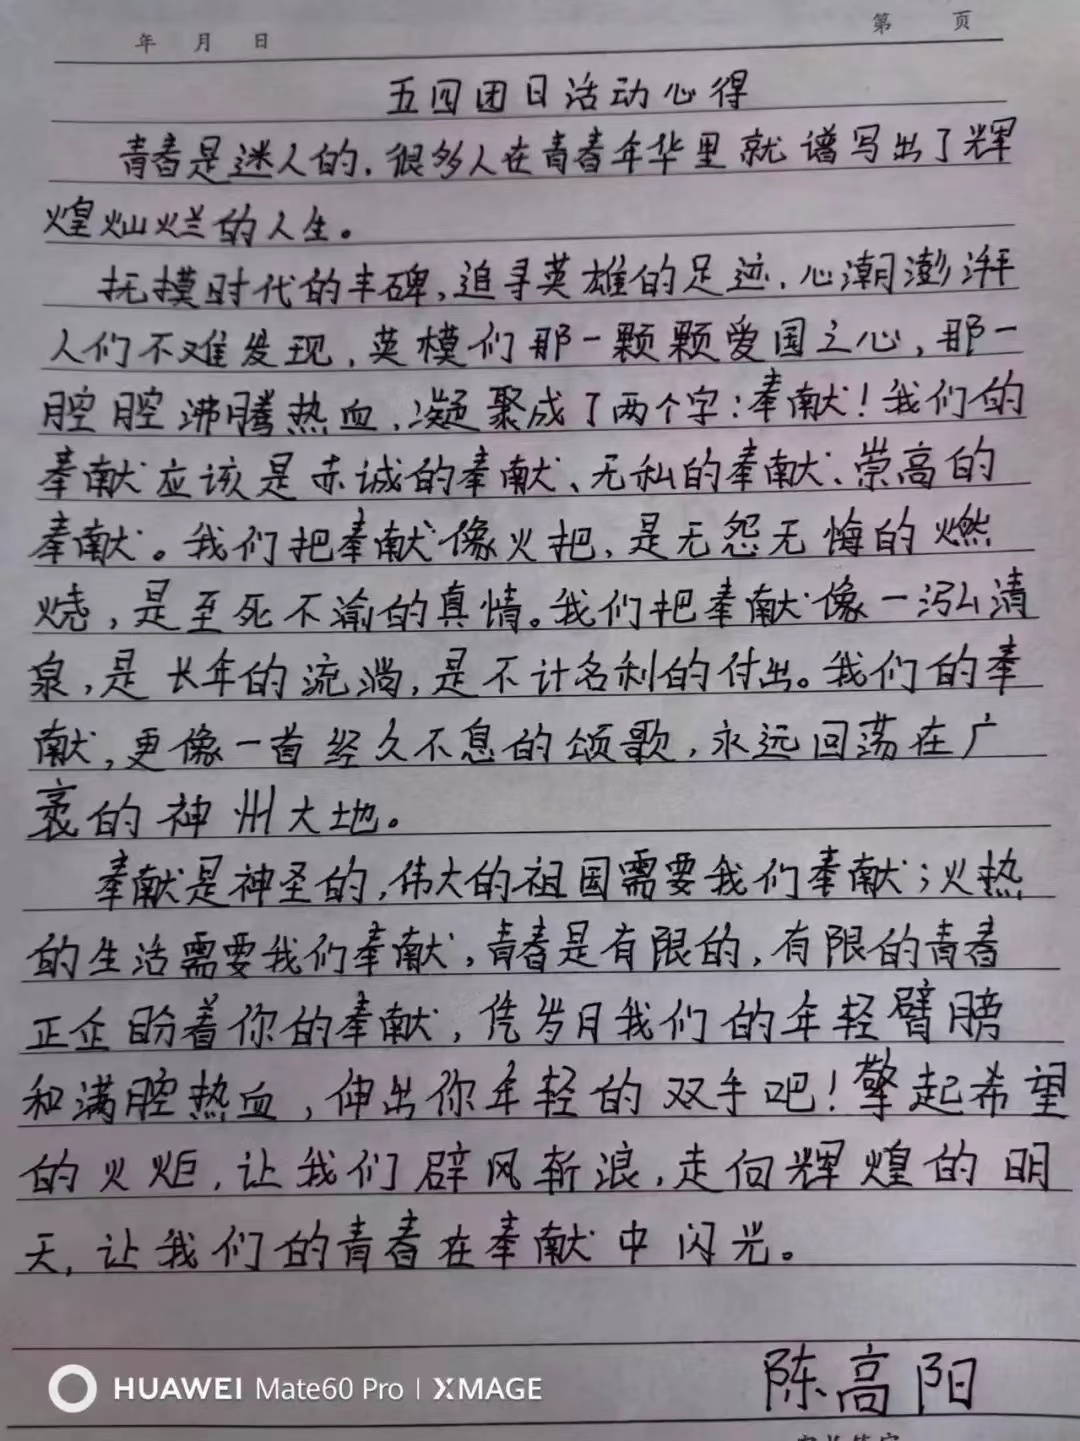 年 月 日
第 页
五四团日活动心得
青春是迷人的.很多人在青春年华里就谱写出了辉
煌灿烂的人生。
抚摸时代的丰碑,追寻英雄的足迹.心潮澎湃
人们不难发现,英模们那一颗颗爱国之心,那一
腔腔沸腾热血,凝聚成了两个字:奉献!我们的
奉献应该是赤诚的奉献、无私的奉献、崇高的
奉献。我们把奉献像火把,是无怨无悔的燃
烧,是至死不渝的真情。我们把奉献像一泓清
泉,是长年的流淌,是不计名利的付出。我们的奉
献,更像一首经久不息的颂歌,永远回荡在广
袤的神州大地。
奉献是神圣的,伟大的祖国需要我们奉献;火热
的生活需要我们奉献,青春是有限的,有限的青春
正企盼着你的奉献,凭岁月我们的年轻臂膀
和满腔热血,伸出你年轻的双手吧!擎起希望
的火炬,让我们辟风斩浪,走向辉煌的明
天,让我们的青春在奉献中闪光。
陈高阳
HUAWEI Mate60 Pro | XMAGE